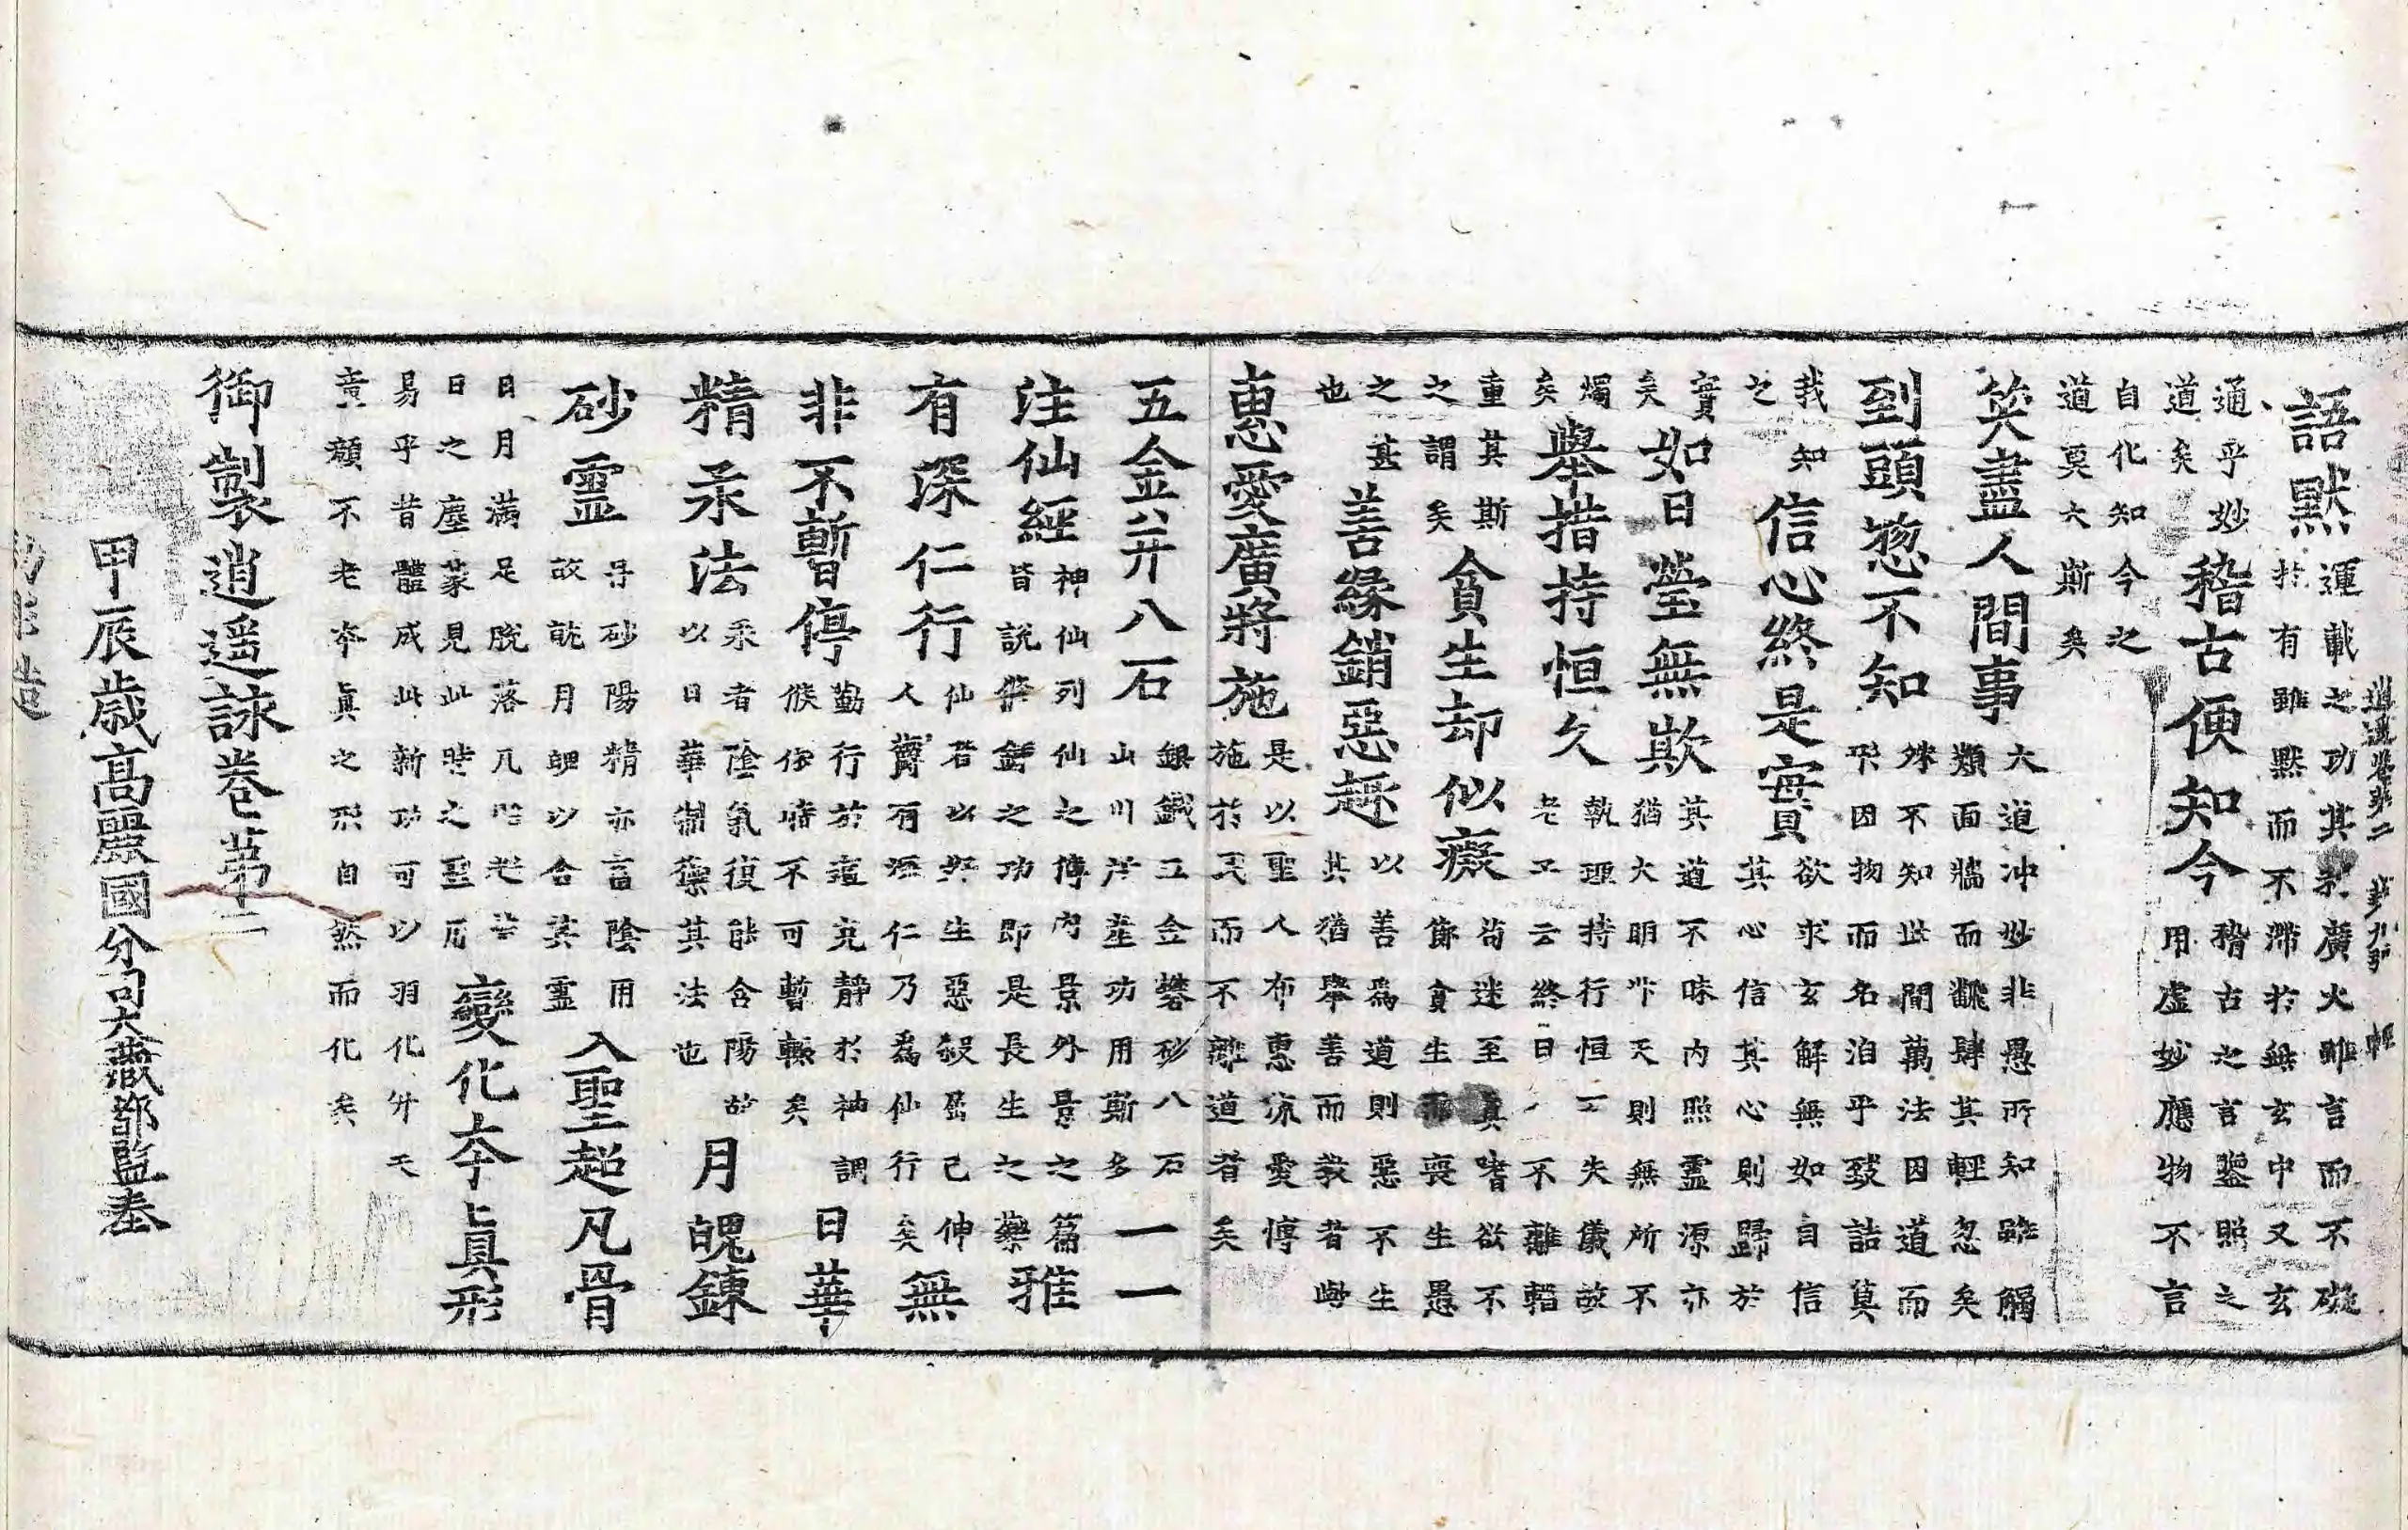 語默運載之功其㪽廣大雖言而不礙
於有雖默而不滯於無玄中又玄
通乎妙
道矣稽古便知今稽古之言鑒照之
用虛妙應物不言
自化知今之
道莫大斯矣
笑盡人間事大道沖妙非愚所知雖觸
類面牆而翫肆其輕忽矣
到頭惣不知殊不知世間萬法因道而
形因物而名洎乎致詰莫
我知
之信心終是實欲求玄解無如自信
其心信其心則歸於
實
矣如日瑩無欺其道不昧內照靈源亦
猶大明麗天則無所不
燭
矣舉措持恒久執理持行恒不失儀故
老子云終日行不離輜
重其斯
之謂矣貪生却似癡苟迷至真嗜欲不
節貪生而喪生愚
之甚
也善緣銷惡趣以善為道則惡不生
其猶舉善而教者歟
惠愛廣將施是以聖人布惠流愛博
施於民而不離道者矣
五金并八石銀鐵五金礬砂八石
山川所產功用斯多一一
注仙經神仙列仙之傳內景外景之篇
皆說修鍊之功即是長生之藥雅
有深仁行仙者以好生惡殺屈己伸
人爵有深仁乃為仙行矣無
非不暫停勤行於道克靜於神調
候依時不可暫輟矣日華
精汞法汞者陰氣復能含陽故
以日華制御其法也月魄鍊
砂靈丹砂陽精亦言陰用
故就月魄以合其靈入聖超凡骨
日月滿足脫落凡
日之塵蒙見此時之聖變化本真形
易乎昔體成此新功可以羽化升天
童顏不老本真之形自然而化矣
御製逍遥詠卷第十一
甲辰歲高麗國分司大藏都監奉